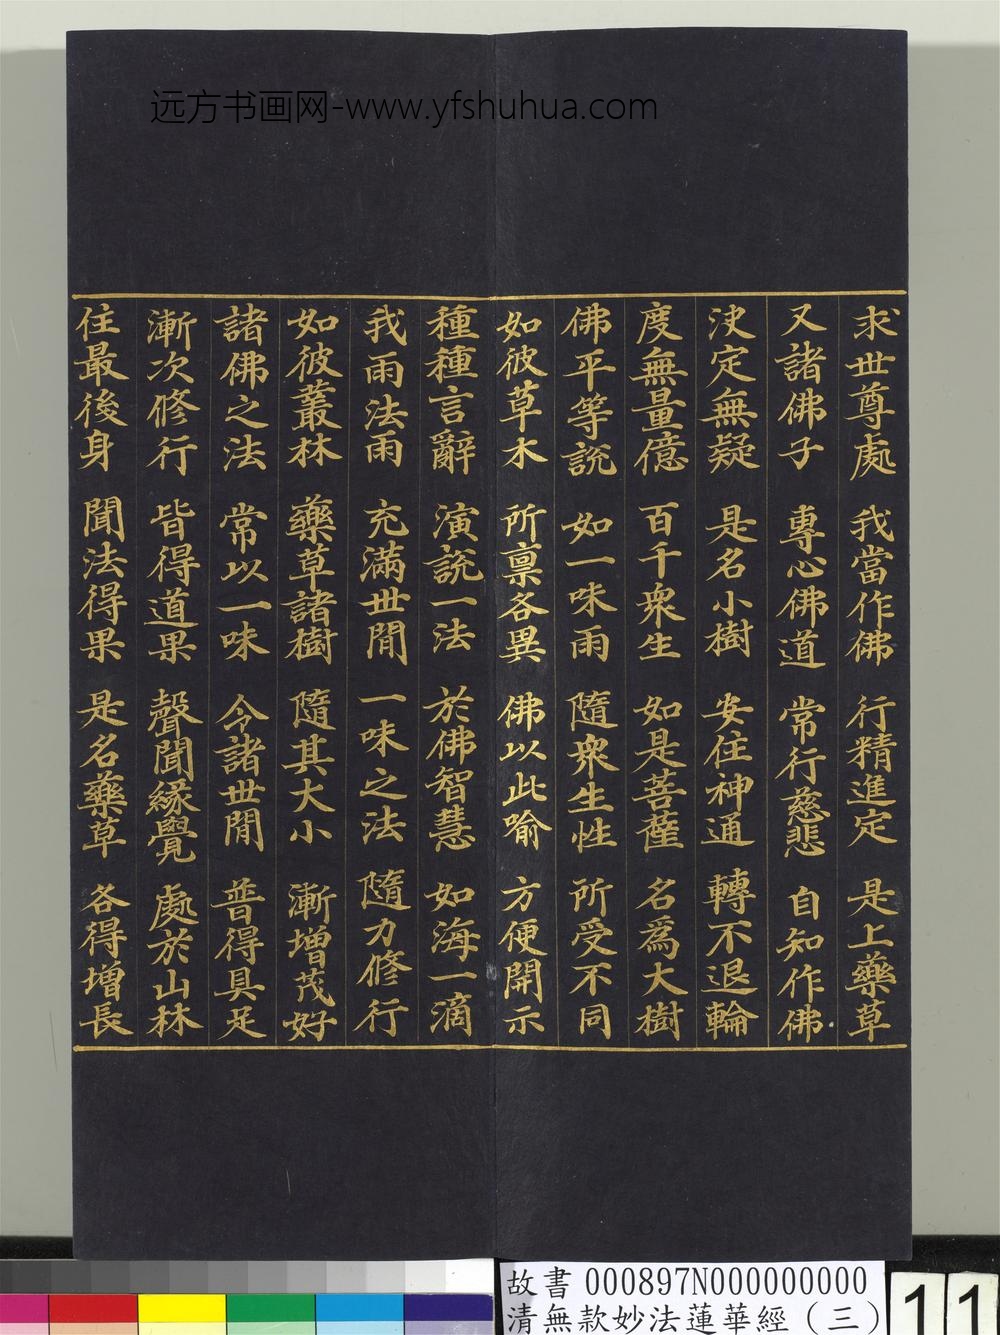 远方书画网-www.yfshuhua.com
求世尊處 我當作佛 行精進定 是上藥草
又諸佛子 專心佛道 常行慈悲 自知作佛
決定無疑 是名小樹 安住神通 轉不退輪
度無量億 百千眾生 如是菩薩 名為大樹
佛平等說 如一味雨 隨眾生性 所受不同
如彼草木 所稟各異 佛以此喻 方便開示
種種言辭 演說一法 於佛智慧 如海一滴
我雨法雨 充滿世間 一味之法 隨力修行
如彼叢林 藥草諸樹 隨其大小 漸增茂好
諸佛之法 常以一味 令諸世間 普得具足
漸次修行 皆得道果 聲聞緣覺 處於山林
住最後身 聞法得果 是名藥草 各得增長
故書 000897N000000000
清無款妙法蓮華經（三）
11